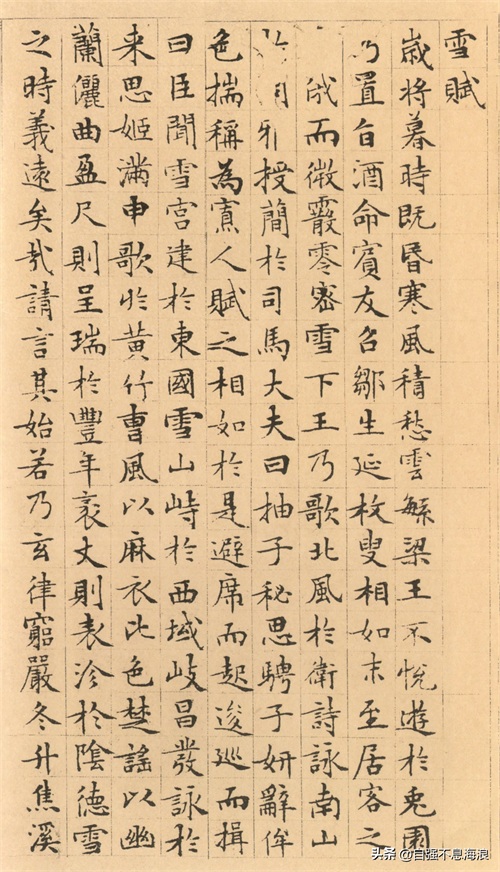 雪賦
歲将暮時既昏寒風積愁雲繁梁王不悦遊於兎園
乃置旨酒命賓友召鄒生延枚叟相如末至居客之
俄而微霰零密雪下王乃歌北風於衛詩詠南山
授簡於司馬大夫曰抽子秘思騁子妍辭侔
色揣稱為寡人賦之相如於是避席而起逡巡而揖
曰臣聞雪宮建於東國雪山峙於西域岐昌發詠於
来思姬滿申歌於黄竹曹風以麻衣比色楚謠以幽
蘭儷曲盈尺則呈瑞於豐年袤丈則表沴於陰德雪
之時義遠矣哉請言其始若乃玄律窮嚴冬升焦溪
头条 @自强不息海浪